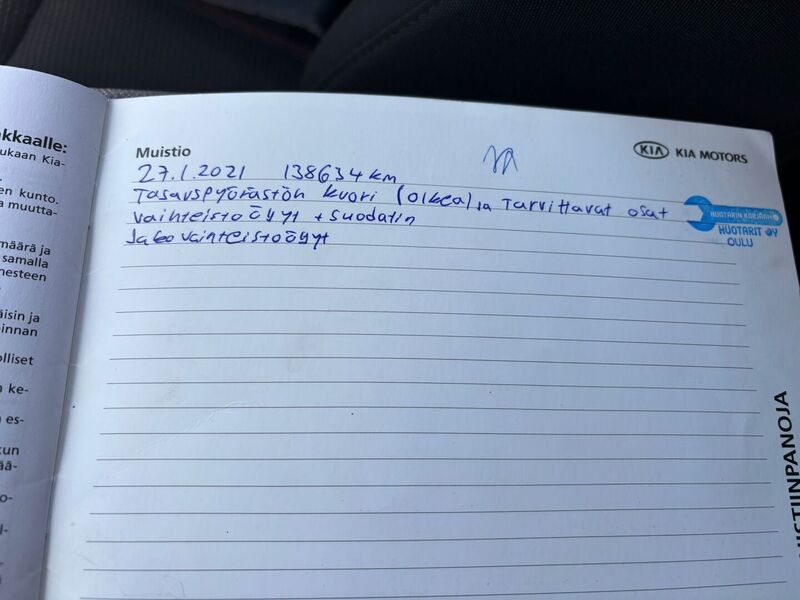 kkaalle:
ukaan Kia-
en kunto.
a muutta-
määrä ja
samalla
nesteen
äisin ja
innan
olliset
n ke-
es-
kun
ää-
o-
l-
Muistio
KIA KIA MOTORS
27.1.2021 138634 km
Tasauspyörästön kuori (oikea) ja Tarvittavat osat
vaihteistoöljyt + suodatin
Jakovaihteistoöljyt
HUOTARIN KORJAAMO
HUOTARIT OY
OULU
MUISTIINPANOJA